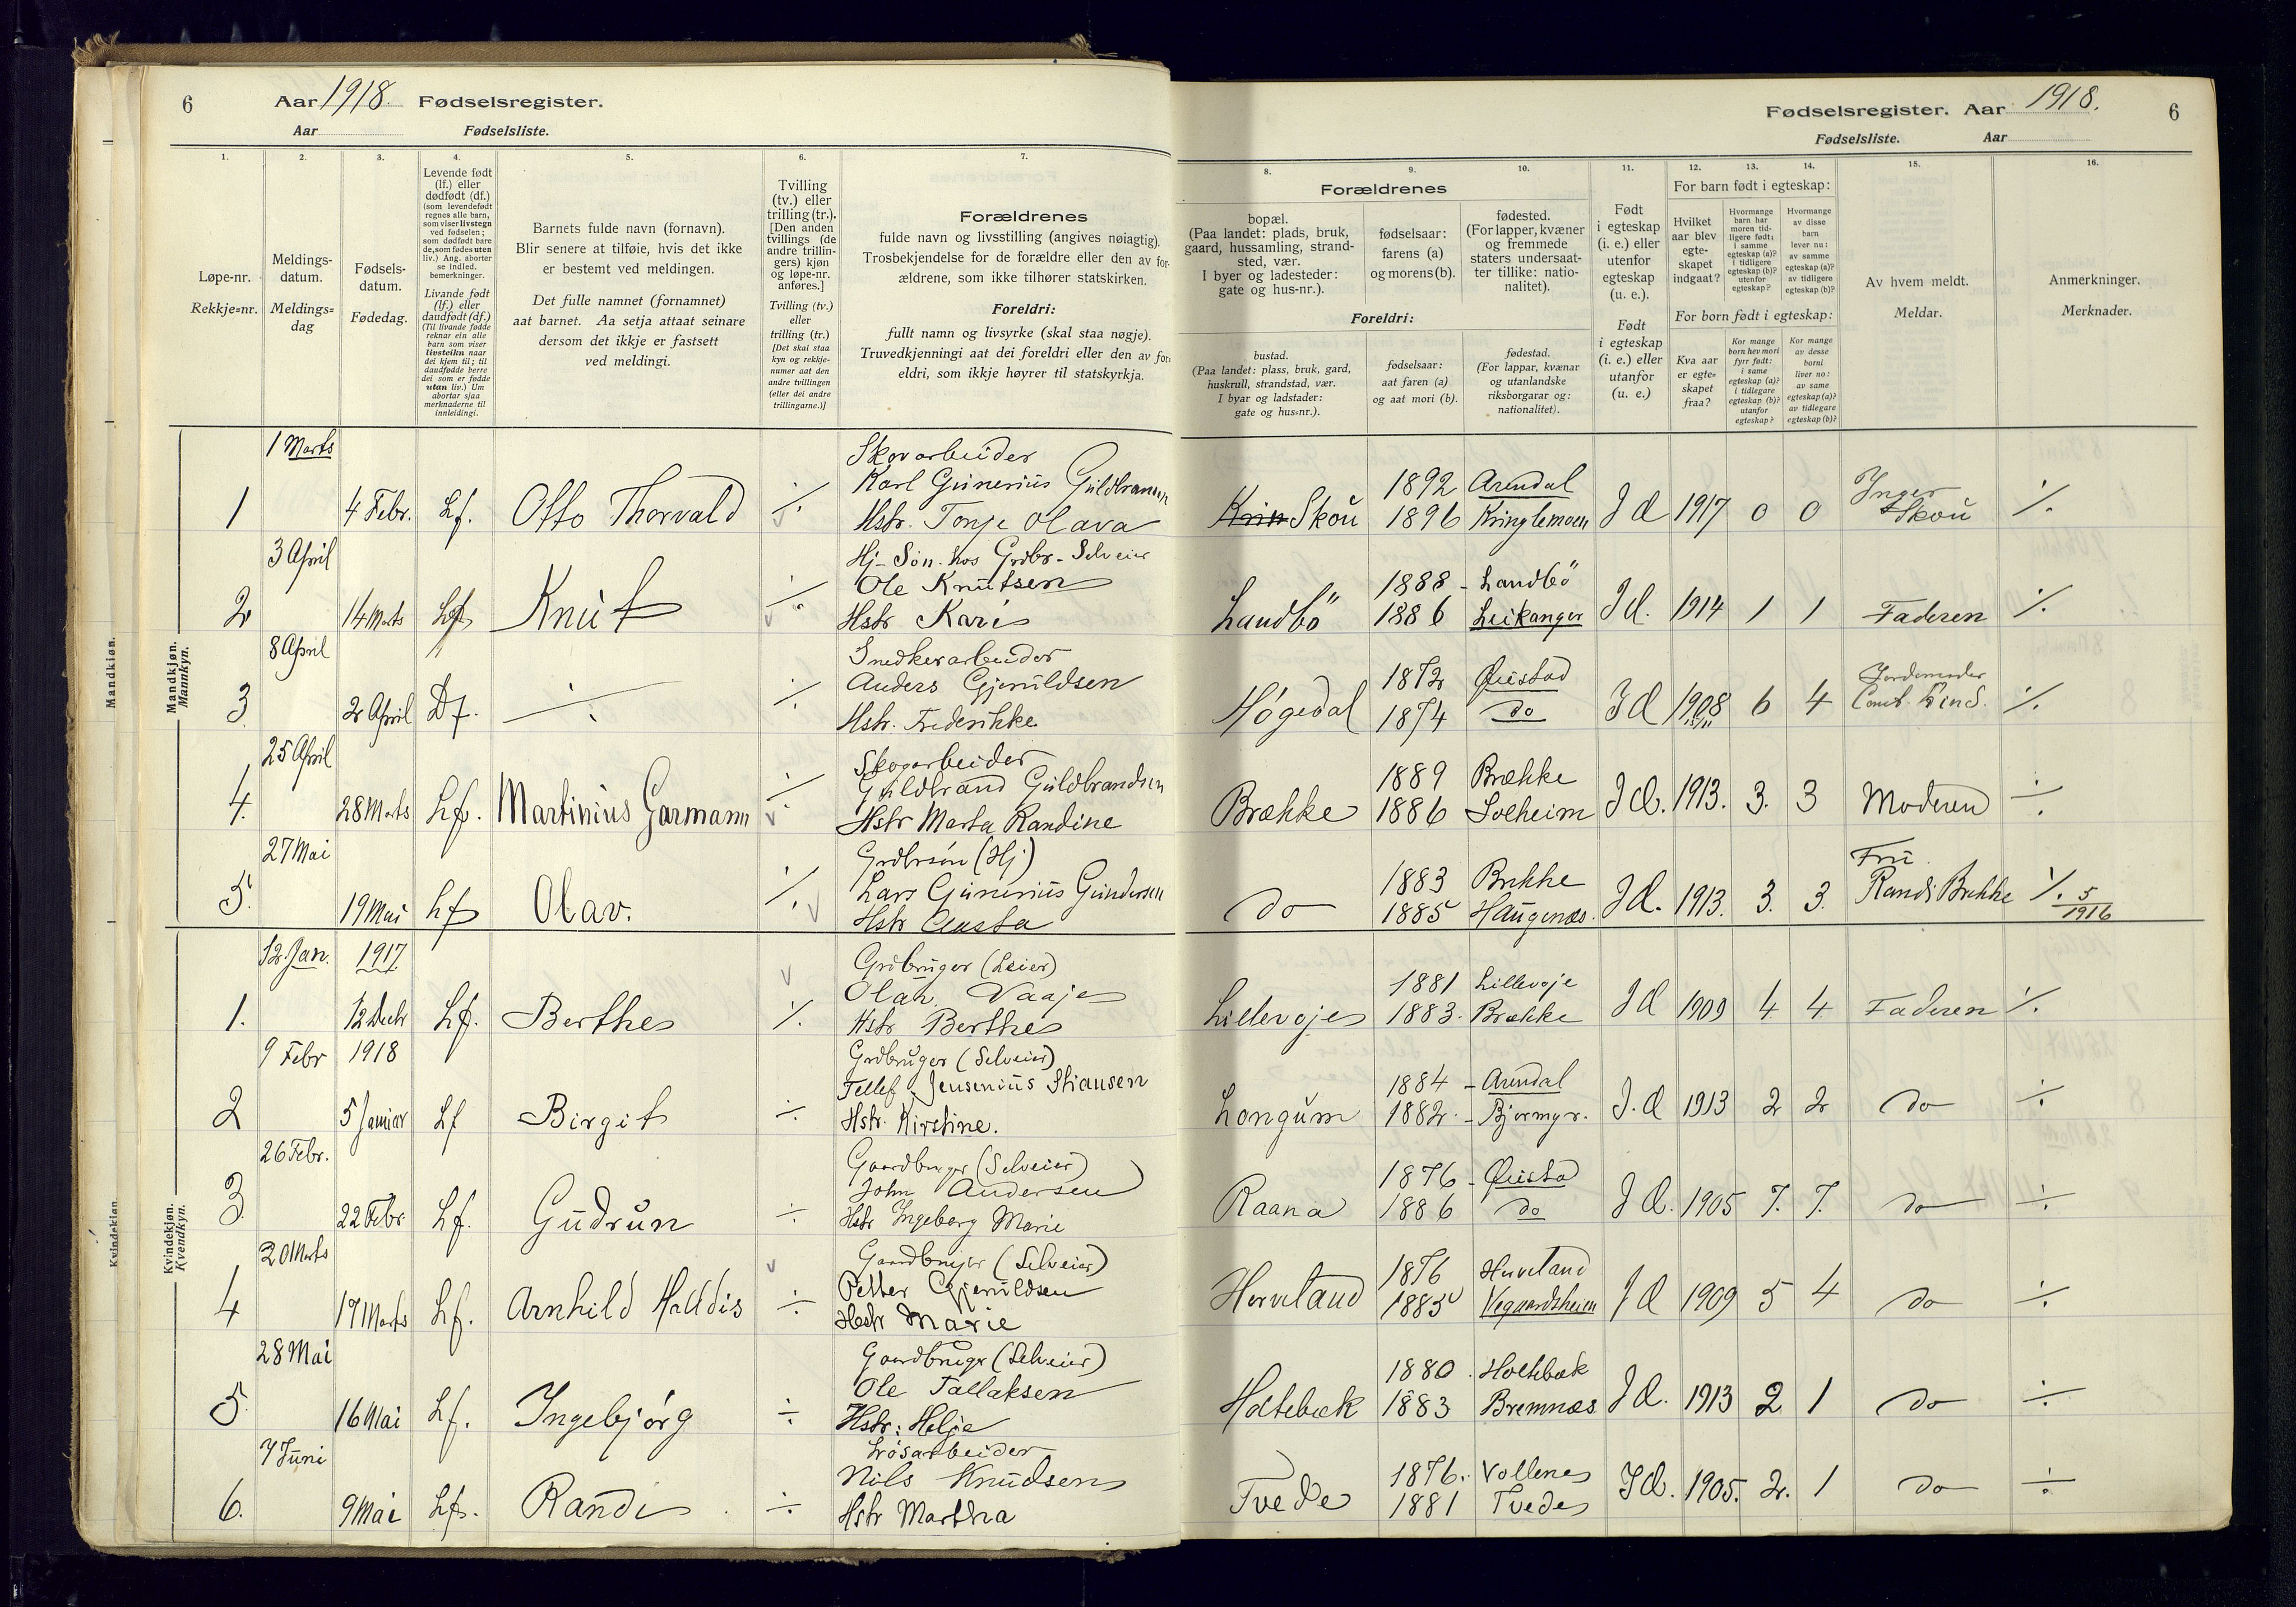 6 Aar 1918. Fødselsregister.
Aar Fødselsliste.
Fødselsregister. Aar 1918. 6
Fødselsliste. Aar
1.
Løpe-nr.
Rekkje=nr.
2.
Meldings-
datum.
Meldings=
dag
3.
Fødsels-
datum.
Fødedag.
4.
Levende født
(lf.) eller
dødfødt (df.)
(som levendefødt
regnes alle barn,
som viser livstegn
ved fødselen;
som dødfødt bare
de, som fødes uten
liv.) Ang. aborter
se indled.
bemerkninger.
Livande født
(lf.) eller
daudfødt (df.)
(Til livande fødde
reknar ein alle
born som viser
livsteikn naar
dei kjem til; til
daudfødde berre
dei som er fødde
utan liv.) Um
abortar sjaa
merknaderne til
innleidingi.
5.
Barnets fulde navn (fornavn).
Blir senere at tilføie, hvis det ikke
er bestemt ved meldingen.
Det fulle namnet (fornamnet)
aat barnet. Aa setja attaat seinare
dersom det ikkje er fastsett
ved meldingi.
6.
Tvilling
(tv.) eller
trilling (tr.).
[Den anden
tvillings (de
andre trillin-
gers) kjøn
og løpe-nr.
anføres.]
Tvilling (tv.)
eller
trilling (tr.)
[Det skal staa
kyn og rekkje-
numer aat den
andre tvillingen
(eller dei andre
trillingarne.)]
7.
Forældrenes
fulde navn og livsstilling (angives nøiagtig).
Trosbekjendelse for de forældre eller den av for-
ældrene, som ikke tilhører statskirken.
Foreldri:
fullt namn og livsyrke (skal staa nøgje).
Truvedkjenningi aat dei foreldri eller den av for-
eldri, som ikkje høyrer til statskyrkja.
Forældrenes
8.
bopæl.
(Paa landet: plads, bruk,
gaard, hussamling, strand-
sted, vær.
I byer og ladesteder:
gate og hus-nr.).
9.
fødselsaar:
farens (a)
og morens (b).
10.
fødested.
(For lapper, kvæner
og fremmede
staters undersaat-
ter tillike: natio-
nalitet).
Foreldri:
bustad.
(Paa landet: plass, bruk, gard,
huskrull, strandstad, vær.
I byar og ladstader:
gate og hus=nr.).
fødselsaar:
aat faren (a)
og aat mori (b).
fødestad.
(For lappar, kvænar
og utanlandske
riksborgarar og:
nationalitet).
11.
Født
i egteskap
(i. e.) eller
utenfor
egteskap
(u. e.).
Født
i egteskap
(i. e.) eller
utanfor
(u. e.)
12. 13. 14.
For barn født i egteskap:
Hvilket
aar blev
egte-
skapet
indgaat?
Hvormange
barn har
moren tid-
ligere født:
i samme
egteskap (a)?
i tidligere
egteskap (b)?
utenfor
egteskap?
Hvormange
av disse
barn
lever nu:
av samme
egteskap (a)?
av tidligere
egteskap (b)?
For born født i egteskap:
Kva aar
er egte-
skapet
fraa?
Kor mange
born hev mori
fyrr født:
i same
egteskap (a)?
i tidlegare
egteskap (b)?
utanfor
egteskap?
Kor mange
av desse
borni
liver no:
av same
egteskap (a)?
av tidlegare
egteskap (b)?
15.
Av hvem meldt.
Meldar.
16.
Anmerkninger.
Merknader.
Mandkjøn.
Mannkyn.
Mandkjøn.
1 Marts Skovarbeider
Karl Gunerius Guldbransen 1892 Arendal Inger
1 4 Febr. Lf. Otto Thorvald ./. Hstr. Tonje Olava Skou 1896 Kringlemoen I Æ 1917 0 0 Skou ./.
3 April Hj-Søn hos Grdbr-Selveier
Ole Knutsen 1888 - Landbö
2 14 Marts Lf Knut ./. Hstr Kari Landbö 1886 Leikanger I Æ. 1914 1 1 Faderen ./.
8 April Snedkerarbeider
Anders Gjeruldsen 1872 Øiestad Jordemoder
3 2 April Df. ./. ./. Hstr. Frederikke Høgedal 1874 do I Æ 1908 6 4 Lind. ./.
25 April Skogarbeider
Guldbrand Guldbrandsen 1889 Brække
4. 28 Marts Lf. Martinius Garmann ./. Hstr Marta Randine Brække 1886 Solheim I Æ. 1913. 3. 3 Moderen ./.
27 Mai Grdbrsøn (Hj) Fru
Lars Gunerius Gundersen 1883 Brekke
5. 19 Mai Lf Olav. ./. Hstr Aasta do 1885 Haugenæs. I Æ. 1913. 3. 3. Randi Brekke ./. 5/1916
Kvindekjøn.
Kvendkyn.
Kvindekjøn
12 Jan. 1917 Grdbruger (Leier)
Olav. Vaaje 1881 Lillevoje
1. 12 Decbr Lf. Berthe ./. Hstr Berthe Lillevoje 1883. Brække I Æ 1909 4 4 Faderen ./.
9 Febr 1918 Grdbruger (Selveier)
Tellef Jensenius Stiansen 1884 - Arendal
2 5 Januar Lf Birgit ./. Hstr. Kirstine. Longum 1882. - Bjormyr. I. Æ 1913 2 2 do ./.
26 Febr. Gaardbruger (Selveier)
John Andersen 1876 - Øiestad
3 22 Febr Lf. Gudrun ./. Hstr Ingeborg Marie Raana 1886 do I Æ. 1905 7. 7. do ./.
20 Marts Gaardbruger (Selveier)
Petter Gjeruldsen 1876 Herveland
4 17 Marts Lf. Arnhild Halldis ./. Hstr Marie Herveland 1883 Vegaardsheien I Æ 1909 5 4 do ./.
28 Mai Gaardbruger (Selveier)
Ole Tallaksen 1880. Holtebæk
5 16 Mai Lf. Ingebjørg ./. Hstr: Helje Holtebæk 1883 Bremnæs I Æ. 1913 2 1 do ./.
7 Juni Løsarbeider
Nils Knudsen 1876. Vollene
6. 9 Mai Lf. Randi ./. Hstr Martha Tvede 1881 Tvede I Æ. 1905. 2. 1 do ./.